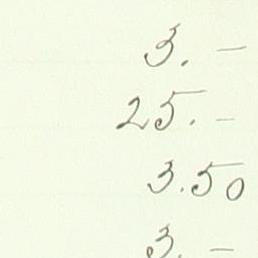 3. –
25. –
3.50
3. –